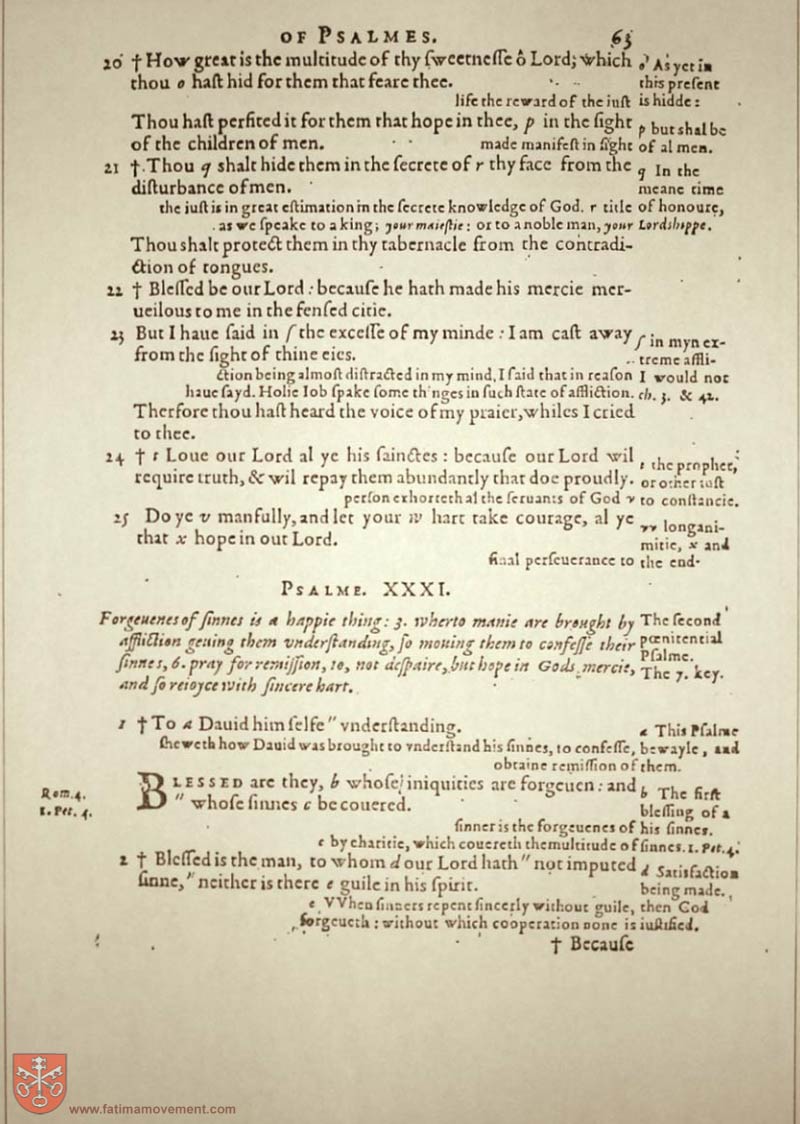 OF PSALMES. 63
20 † How great is the multitude of thy ſweetneſſe ô Lord; which o As yet in
thou o haſt hid for them that feare thee. this preſent
life the reward of the iuſt is hidde:
Thou haſt perfited it for them that hope in thee, p in the ſight p but shal be
of the children of men. made manifeſt in ſight of al men.
21 †. Thou q shalt hide them in the ſecrete of r thy face from the q In the
diſturbance of men. meane time
the iuſt is in great eſtimation in the ſecrete knowledge of God. r title of honoure,
as we ſpeake to a king; your maieſtie: or to a noble man, your Lordshippe.
Thou shalt protect them in thy tabernacle from the contradi-
ction of tongues.
22 † Bleſſed be our Lord: becauſe he hath made his mercie mer-
ueilous to me in the fenſed citie.
23 But I haue ſaid in ſ the exceſſe of my minde: I am caſt away ſ in myn ex-
from the ſight of thine eies. treme affli-
ction being almoſt diſtracted in my mind, I ſaid that in reaſon I would not
haue ſayd. Holie Iob ſpake ſome thinges in ſuch ſtate of affliction. ch. 3. & 42.
Therfore thou haſt heard the voice of my praier, whiles I cried
to thee.
24 † t Loue our Lord al ye his ſainctes: becauſe our Lord wil t the prophet,
require truth, & wil repay them abundantly that doe proudly. or other iuſt
perſon exhorteth al the ſeruants of God v to conſtancie.
25 Do ye v manfully, and let your w hart take courage, al ye w longani-
that x hope in our Lord. mitie, x and
final perſeuerance to the end.
PSALME. XXXI.
Forgeuenes of ſinnes is a happie thing: 3. wherto manie are brought by The ſecond
affliction geuing them vnderſtanding, ſo mouing them to confeſſe their pœnitential
ſinnes, 6. pray for remiſſion, 10, not deſpaire, but hope in Gods mercie, Pſalme.
and ſo reioyce with ſincere hart. The 7. key.
1 † To a Dauid him ſelfe " vnderſtanding. a This Pſalme
ſheweth how Dauid was brought to vnderſtand his ſinnes, to confeſſe, bewayle, and
obtaine remiſſion of them.
Rom. 4. BLESSED are they, b whoſe iniquities are forgeuen: and b The firſt
1. Pet. 4. " whoſe ſinnes c be couered. bleſſing of a
ſinner is the forgeuenes of his ſinnes.
c by charitie, which couereth the multitude of ſinnes. 1. Pet. 4.
2 † Bleſſed is the man, to whom d our Lord hath " not imputed d Satisfaction
ſinne, " neither is there e guile in his ſpirit. being made.
e VVhen ſinners repent ſincerly without guile, then God
forgeueth: without which cooperation none is iuſtified.
† Becauſe
www.fatimamovement.com